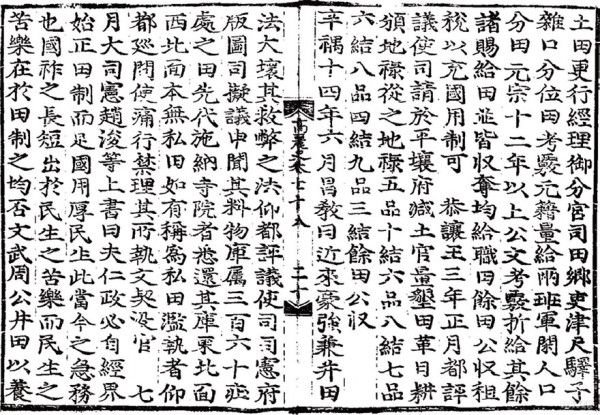 土田更行經理御分宮司田鄕吏津尺驛子
雜口分位田考覈元籍量給兩班軍閑人口
分田元宗十二年以上公文考覈折給其餘
諸賜給田並皆収奪均給職田餘田公収租
稅以充國用制可　恭讓王三年正月都評
議使司請於平壤府減土官量墾田革日耕
頒地祿從之地祿五品十結六品八結七品
六結八品四結九品三結餘田公収
辛禑十四年六月昌敎曰近來豪強兼幷田
高麗史卷七十八　二十
法大壞其救弊之法仰都評議使司司憲府
版圖司擬議申聞其料物庫屬三百六十莊
處之田先代施納寺院者悉還其庫東北面
西北面本無私田如有稱爲私田濫執者仰
都廵問使痛行禁理其所執文契沒官　七
月大司憲趙浚等上書曰夫仁政必自經界
始正田制而足國用厚民生此當今之急務
也國祚之長短出於民生之苦樂而民生之
苦樂在於田制之均否文武周公井田以養